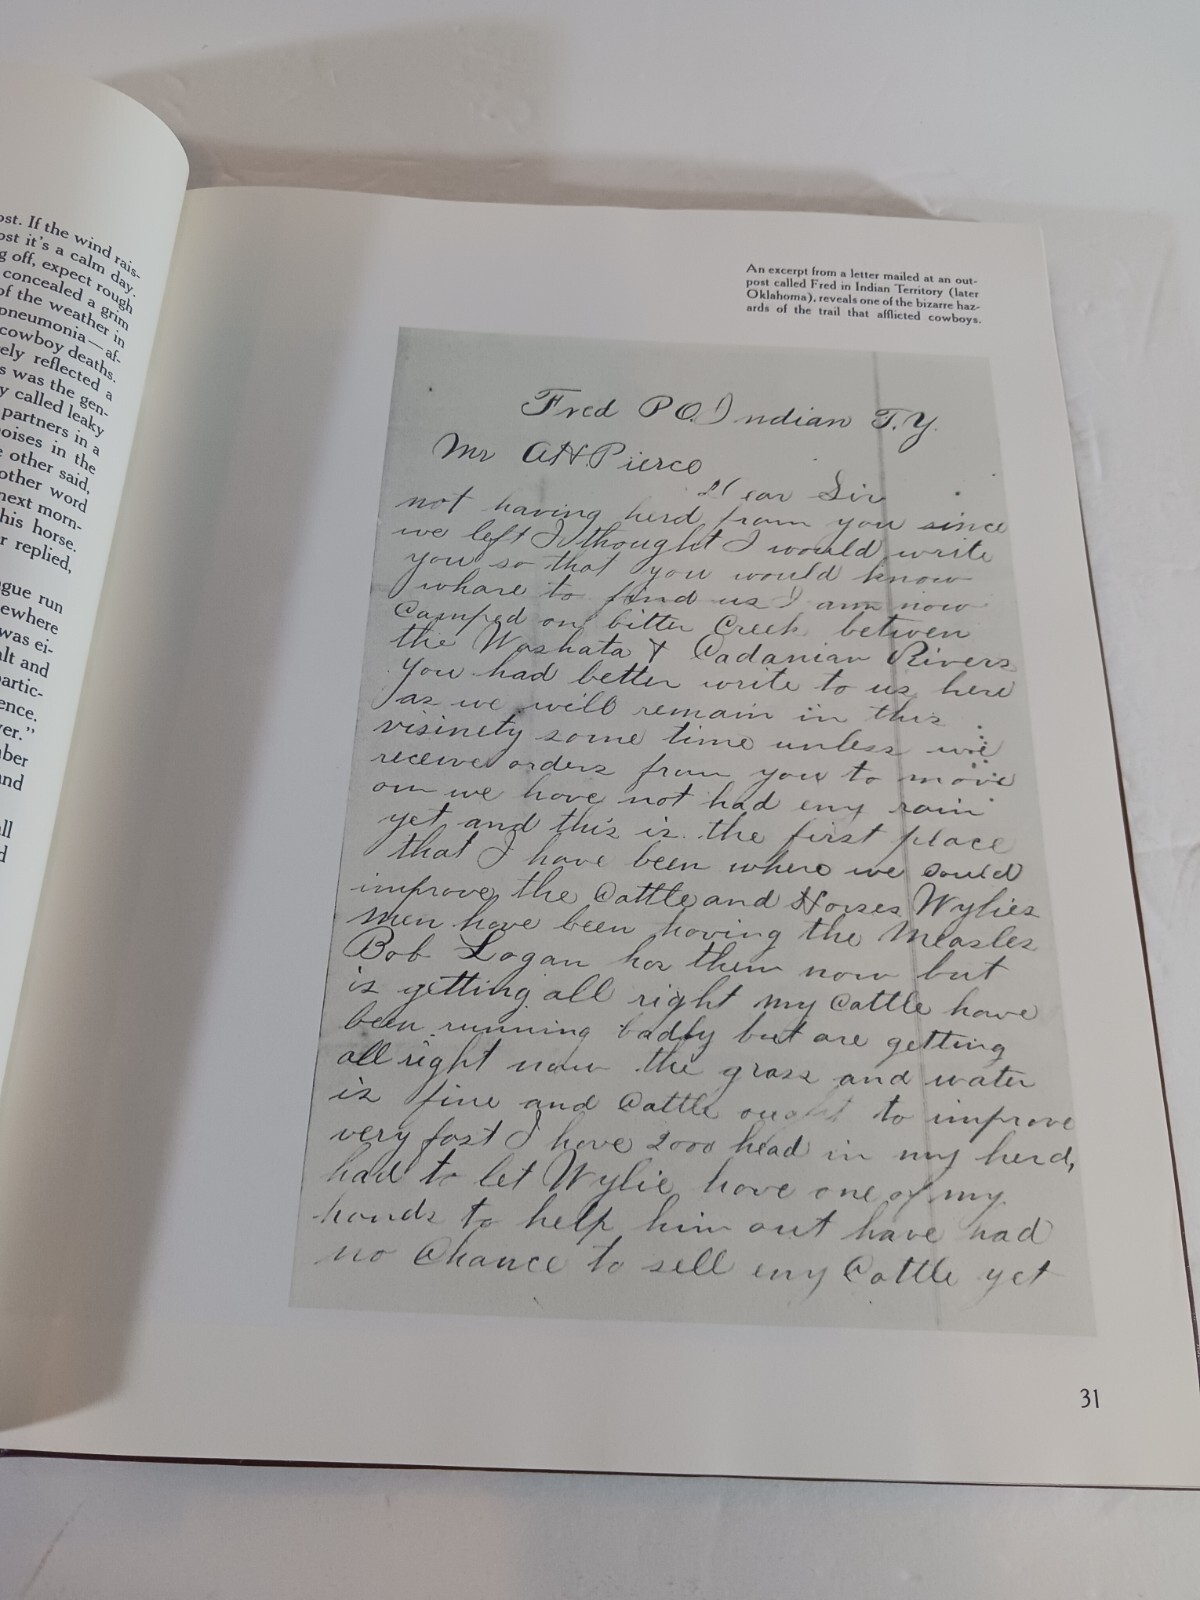 ost. If the wind rais-
ost it's a calm day.
g off, expect rough
concealed a grim
of the weather in
pneumonia—af-
cowboy deaths.
ely reflected a
s was the gen-
y called leaky
partners in a
oises in the
e other said,
other word
next morn-
his horse.
r replied,
gue run
ewhere
was ei-
alt and
partic-
ence.
ver."
mber
and
all
d
An excerpt from a letter mailed at an out-
post called Fred in Indian Territory (later
Oklahoma), reveals one of the bizarre haz-
ards of the trail that afflicted cowboys.
Fred P O. Indian T.Y.
Mr A H. Pierce
Dear Sir
not having herd from you since
we left I thought I would write
you so that you would know
whare to find us I am now
Camped on bitter Creek betwen
the Washata & Cadanian Rivers
You had better write to us here
as we will remain in this
visinety some time unless we
receive orders from you to move
on we have not had eny rain
yet and this is the first place
that I have been where we could
improve the Cattle and Horses Wylies
men have been having the Measles
Bob Logan has them now but
is getting all right my Cattle have
been running badly but are getting
all right now the grass and water
is fine and Cattle ought to improve
very fast I have 2000 head in my herd,
had to let Wylie have one of my
hands to help him out have had
no Chance to sell eny Cattle yet
31